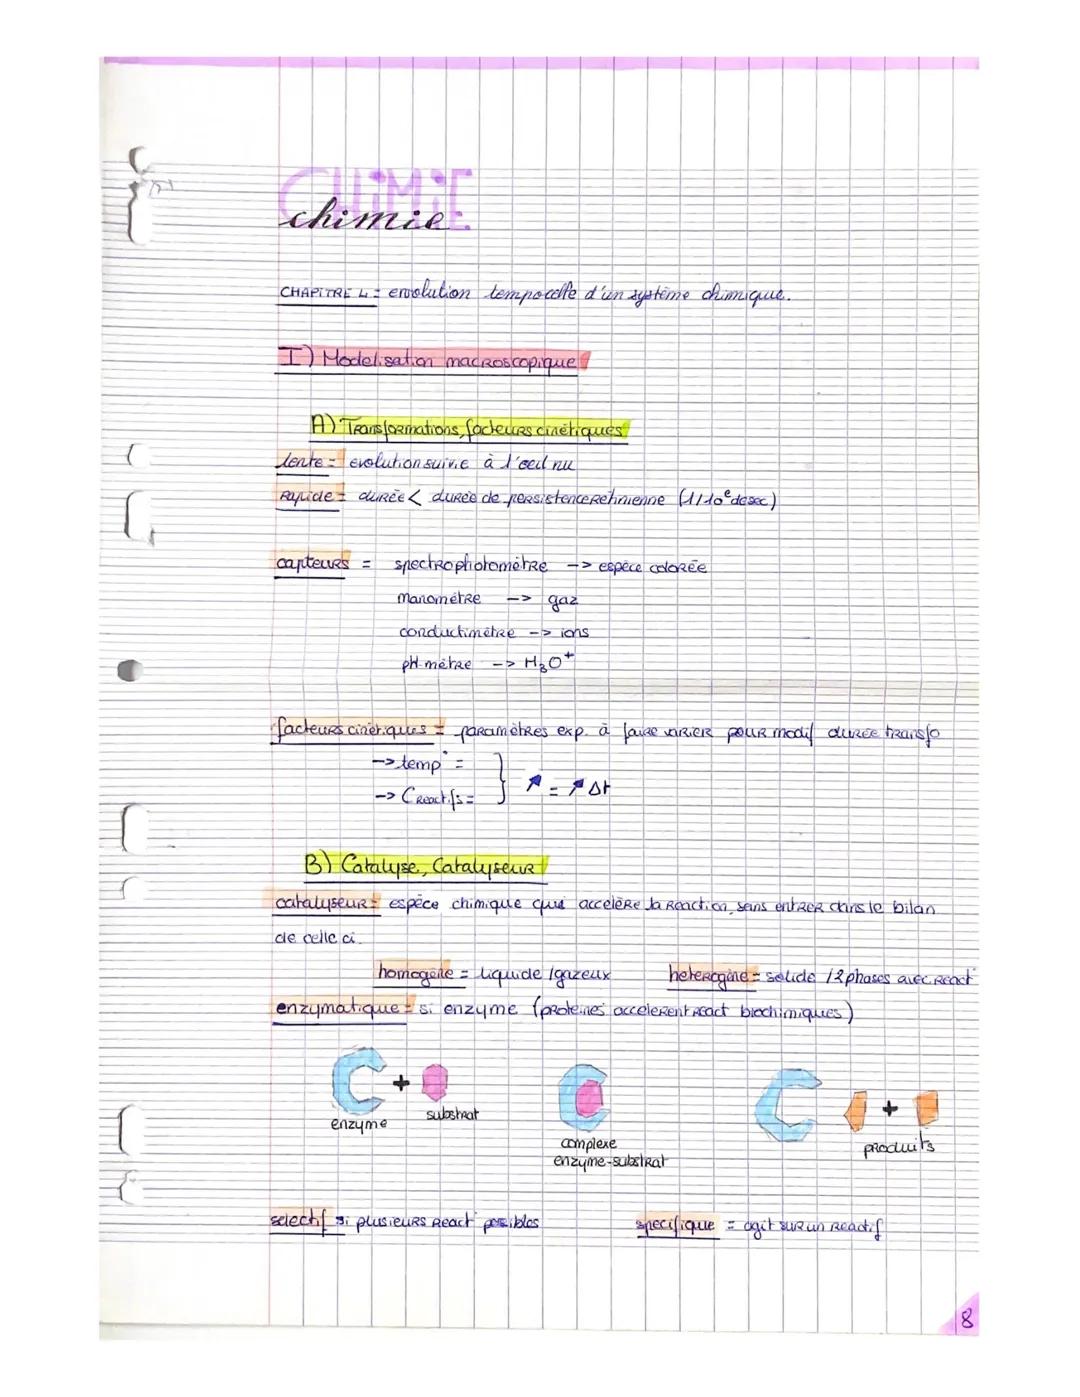 CHIMIE
chimie
CHAPITRE 4 = evolution temporelle d'un système chimique.
I) Modelisation macroscopique
A) Transformations, facteurs cinétiques
lente = evolution suivie à l'oeil nu
Rapide = durée < durée de persistence retinienne (1/10e de sec)
capteurs = spectrophotomètre -> espèce colorée
manomètre -> gaz
conductimètre -> ions
pH mètre -> H3O+
facteurs cinétiques = paramètres exp. à faire varier pour modif durée transfo
-> temp° =
-> C reactifs = } ↗ = ↗ Δt
B) Catalyse, Catalyseur
catalyseur = espèce chimique qui accelère la reaction, sans entrer dans le bilan
de celle ci.
homogène = liquide / gazeux heterogène = solide / 2 phases avec react°
enzymatique = si enzyme (proteines accelerent react° biochimiques)
+ +
enzyme substrat complexe enzyme-substrat produits
selectif = si plusieurs react° possibles specifique = agit sur un reactif
8